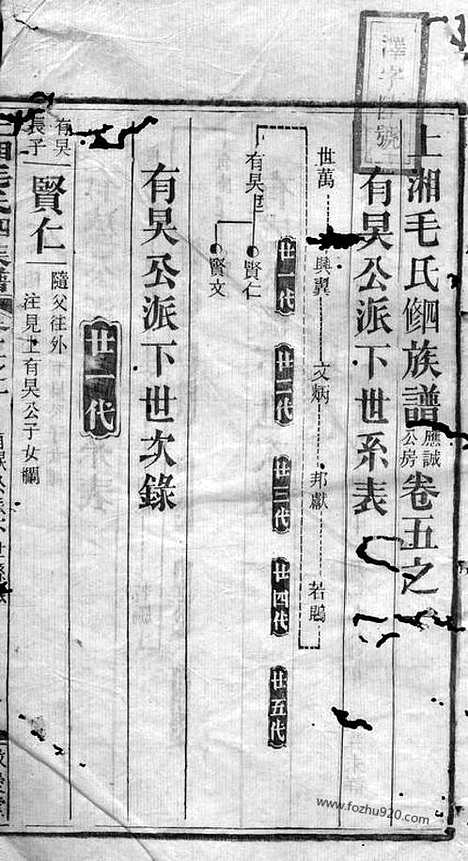 澤字
號
上湘毛氏四修族譜
應誠
公房
卷五之
有昊公派下世系表
世萬
興翼
文炳
邦獻
若鵾
有昊
廿一代
廿二代
廿三代
廿四代
廿五代
賢仁
賢文
有昊公派下世次錄
廿一代
有昊
長子
賢仁
隨父往外
注見上有昊公子女欄
www.fozhu920.com